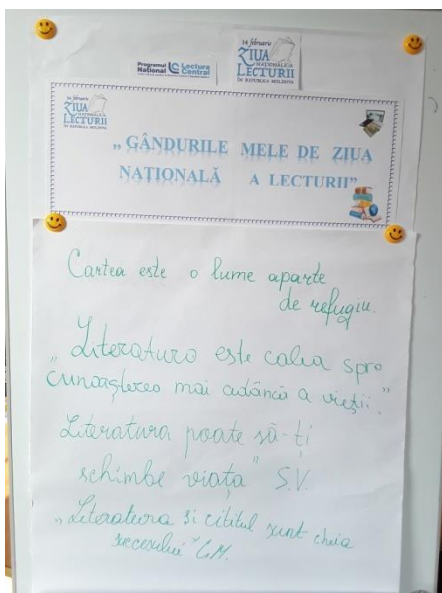 14 februarie
ZIUA
NAȚIONALĂ A
LECTURII
ÎN REPUBLICA MOLDOVA
Programul
Național
Lectura
Central
14 februarie
ZIUA
NAȚIONALĂ A
LECTURII
ÎN REPUBLICA MOLDOVA
„GÂNDURILE MELE DE ZIUA
NAȚIONALĂ A LECTURII”
Cartea este o lume aparte
de refugiu.
„Literatura este calea spre
cunoașterea mai adâncă a vieții.”
Literatura poate să-ți
schimbe viața” S.V.
„Literatura și cititul sunt cheia
succesului” C.M.